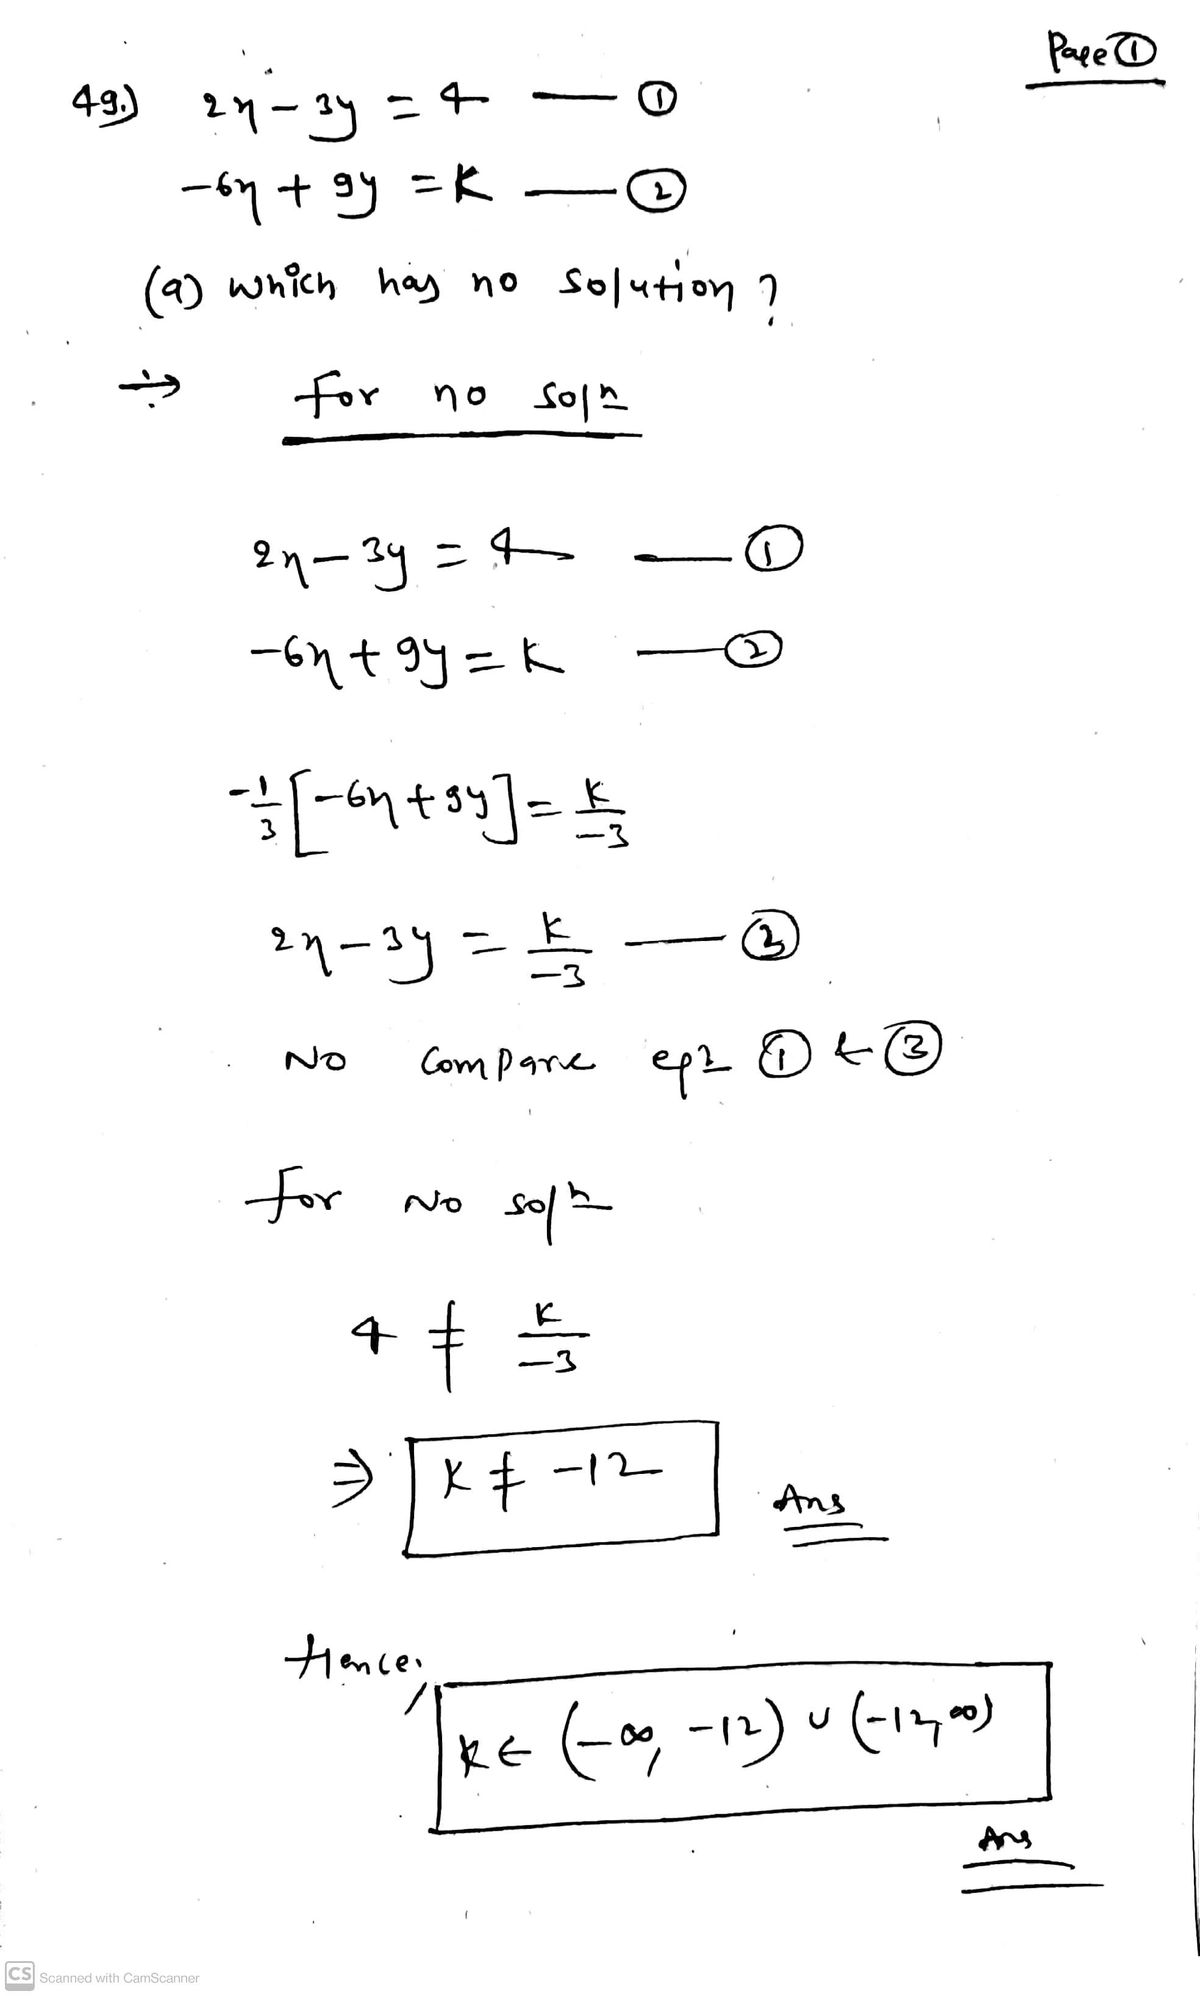 Page ①
49.) 2x - 3y = 4 — ①
-6x + 9y = K — ②
(a) which has no solution ?
∸> for no solⁿ
2x - 3y = 4 — ①
-6x + 9y = K — ②
-1/3 [-6x + 9y] = K/-3
2x - 3y = K/-3 — ③
No Compare eqⁿ ① & ③
for No solⁿ
4 ≠ K/-3
⇒ K ≠ -12 Ans
Hence,
K ∈ (-∞, -12) ∪ (-12, ∞)
Ans
CS Scanned with CamScanner